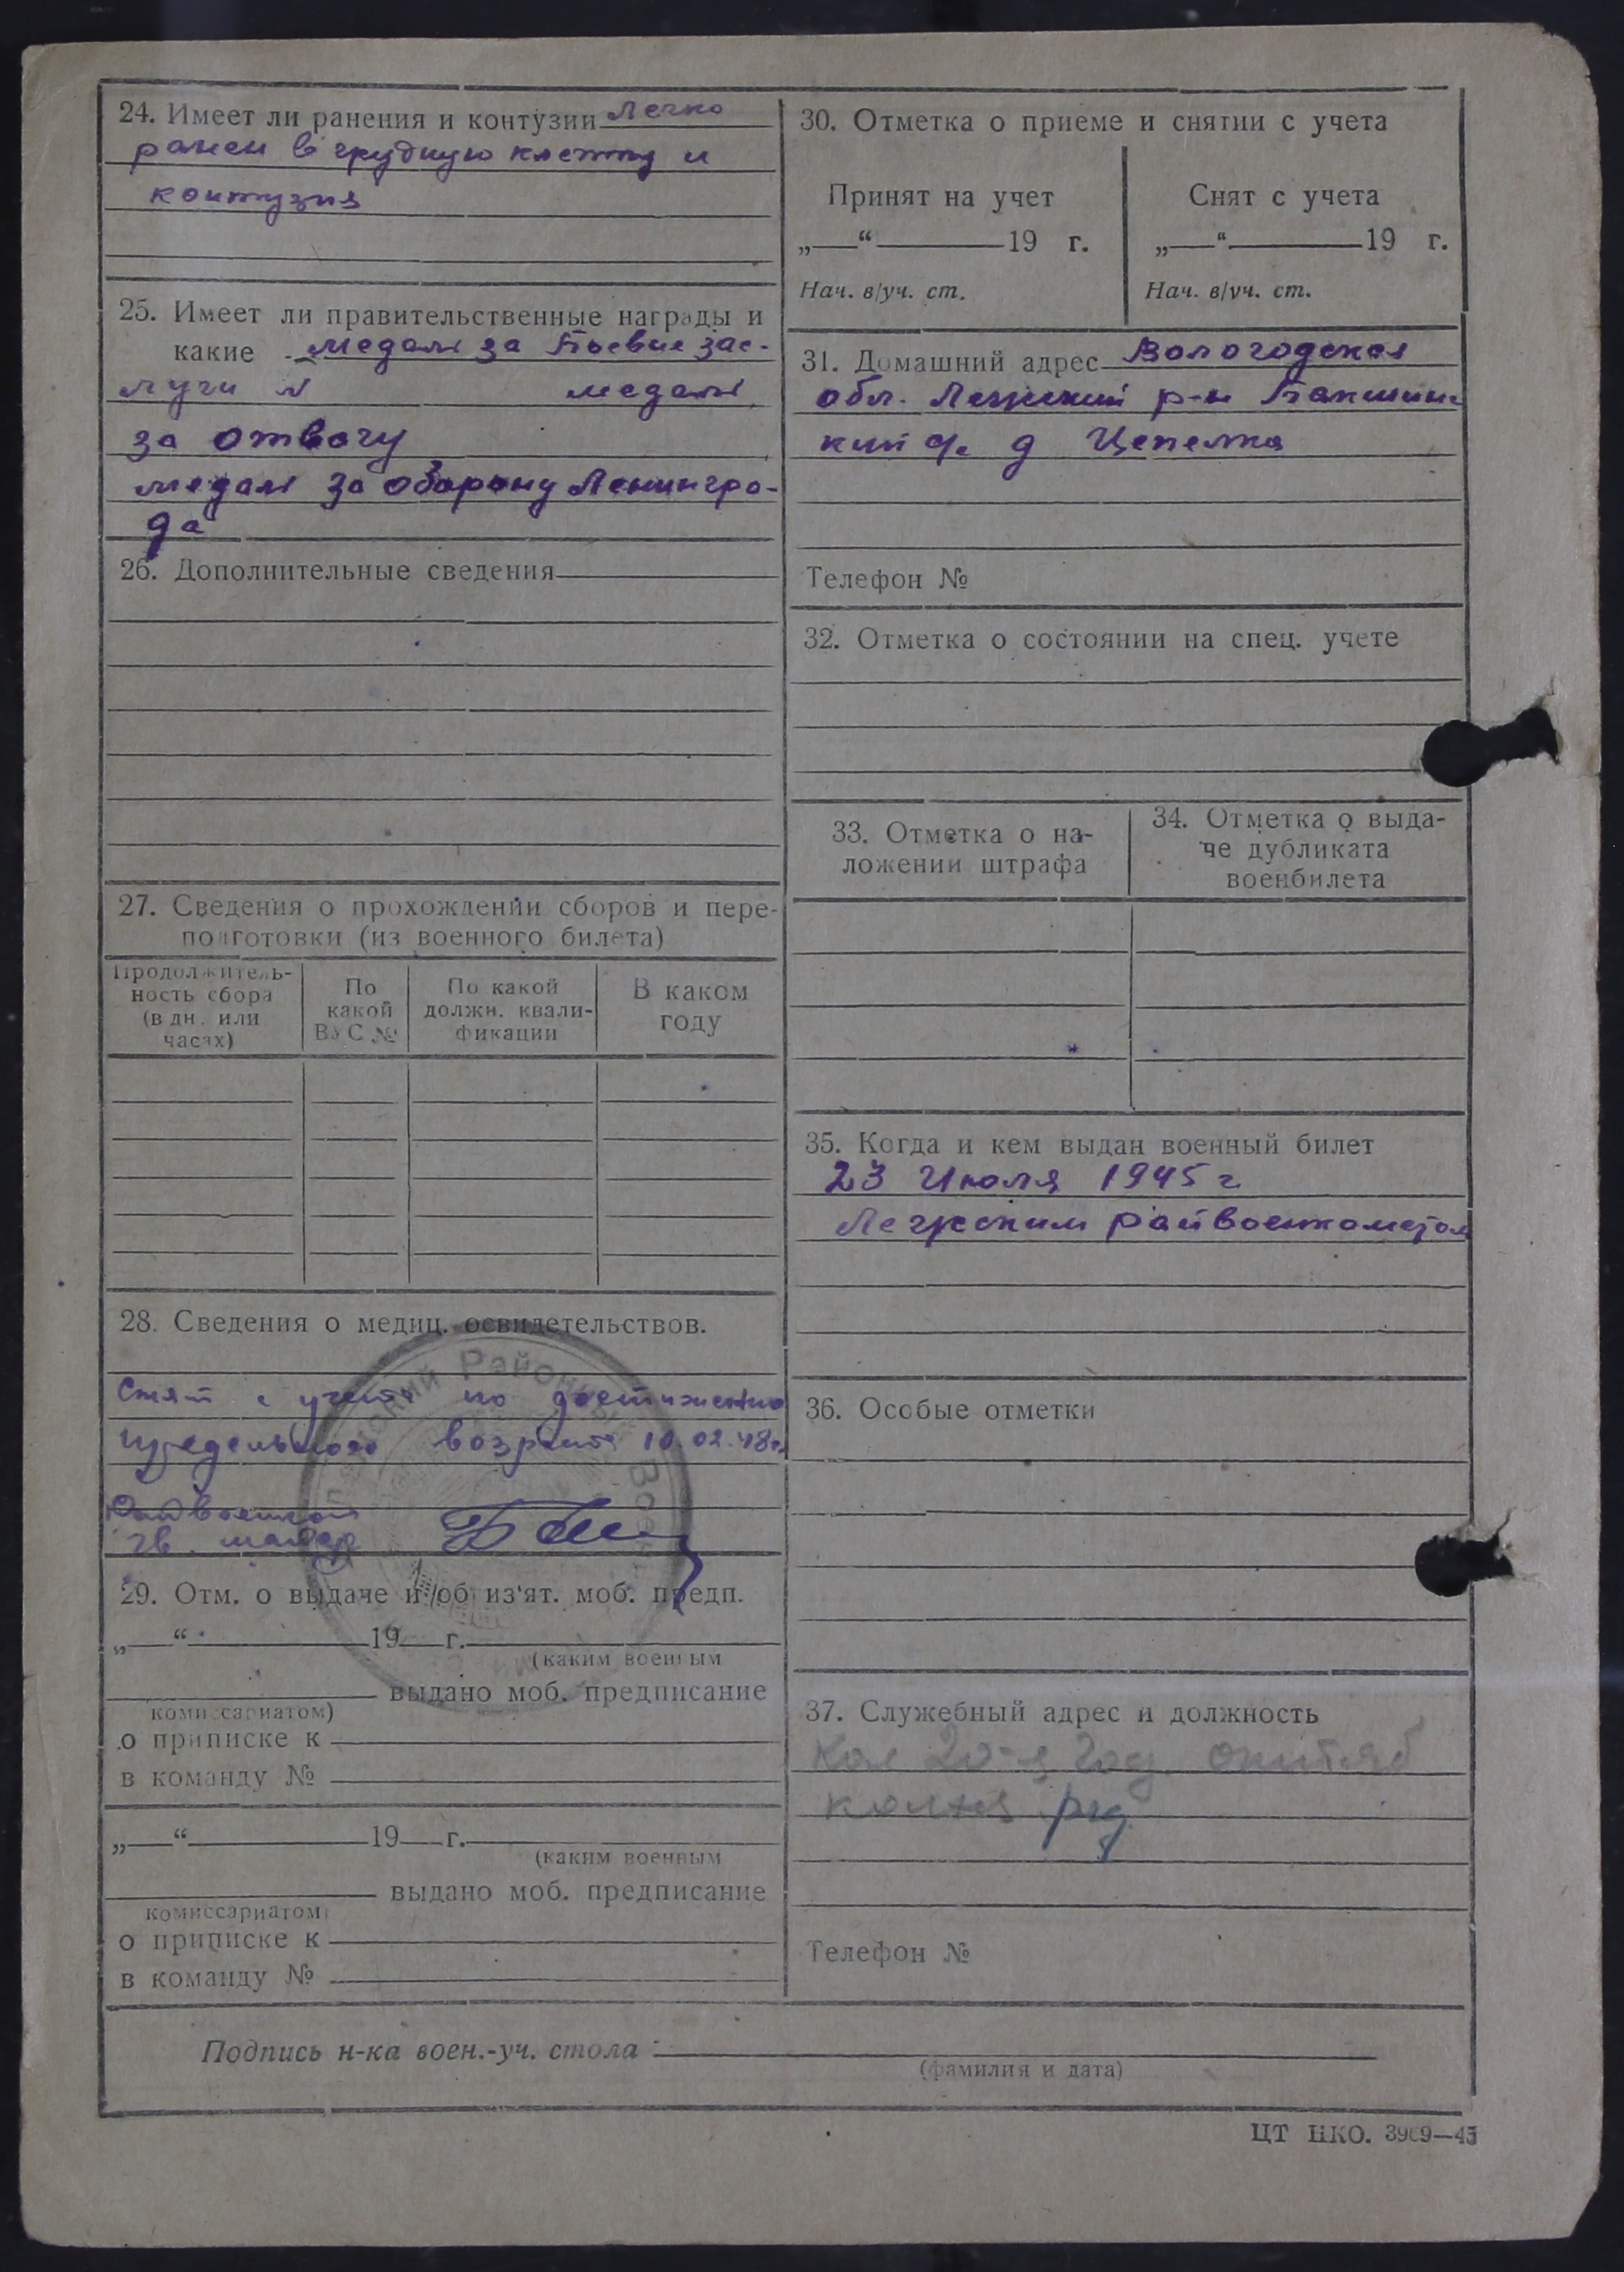 24. Имеет ли ранения и контузии Легко
ранен в грудную клетку и
контузия
25. Имеет ли правительственные награды и
какие медаль за Боевые зас-
луги N медаль
за отвагу
медаль за оборону Ленингра-
да
26. Дополнительные сведения
27. Сведения о прохождении сборов и пере-
подготовки (из военного билета)
Продолжитель-
ность сбора
(в дн. или
часах)
По
какой
ВУС №
По какой
должн. квали-
фикации
В каком
году
28. Сведения о медиц. освидетельствов.
Снят с учета по достижению
предельного возраста 10.02.48г.
Райвоенком
гв. майор
29. Отм. о выдаче и об из'ят. моб. предп.
„—“ 19 г.
(каким военным
выдано моб. предписание
комиссариатом)
о приписке к
в команду №
„—“ 19 г.
(каким военным
выдано моб. предписание
комиссариатом)
о приписке к
в команду №
30. Отметка о приеме и снятии с учета
Принят на учет
„—“ 19 г.
Нач. в/уч. ст.
Снят с учета
„—“ 19 г.
Нач. в/уч. ст.
31. Домашний адрес Вологодская
обл. Лежский р-н Бакшин-
кий с/с д Цепелка
Телефон №
32. Отметка о состоянии на спец. учете
33. Отметка о на-
ложении штрафа
34. Отметка о выда-
че дубликата
военбилета
35. Когда и кем выдан военный билет
23 Июля 1945 г
Лежским райвоенкоматом
36. Особые отметки
37. Служебный адрес и должность
Кол 20-я год. октяб
Телефон №
Подпись н-ка воен.-уч. стола
(фамилия и дата)
ЦТ НКО. 3969—45